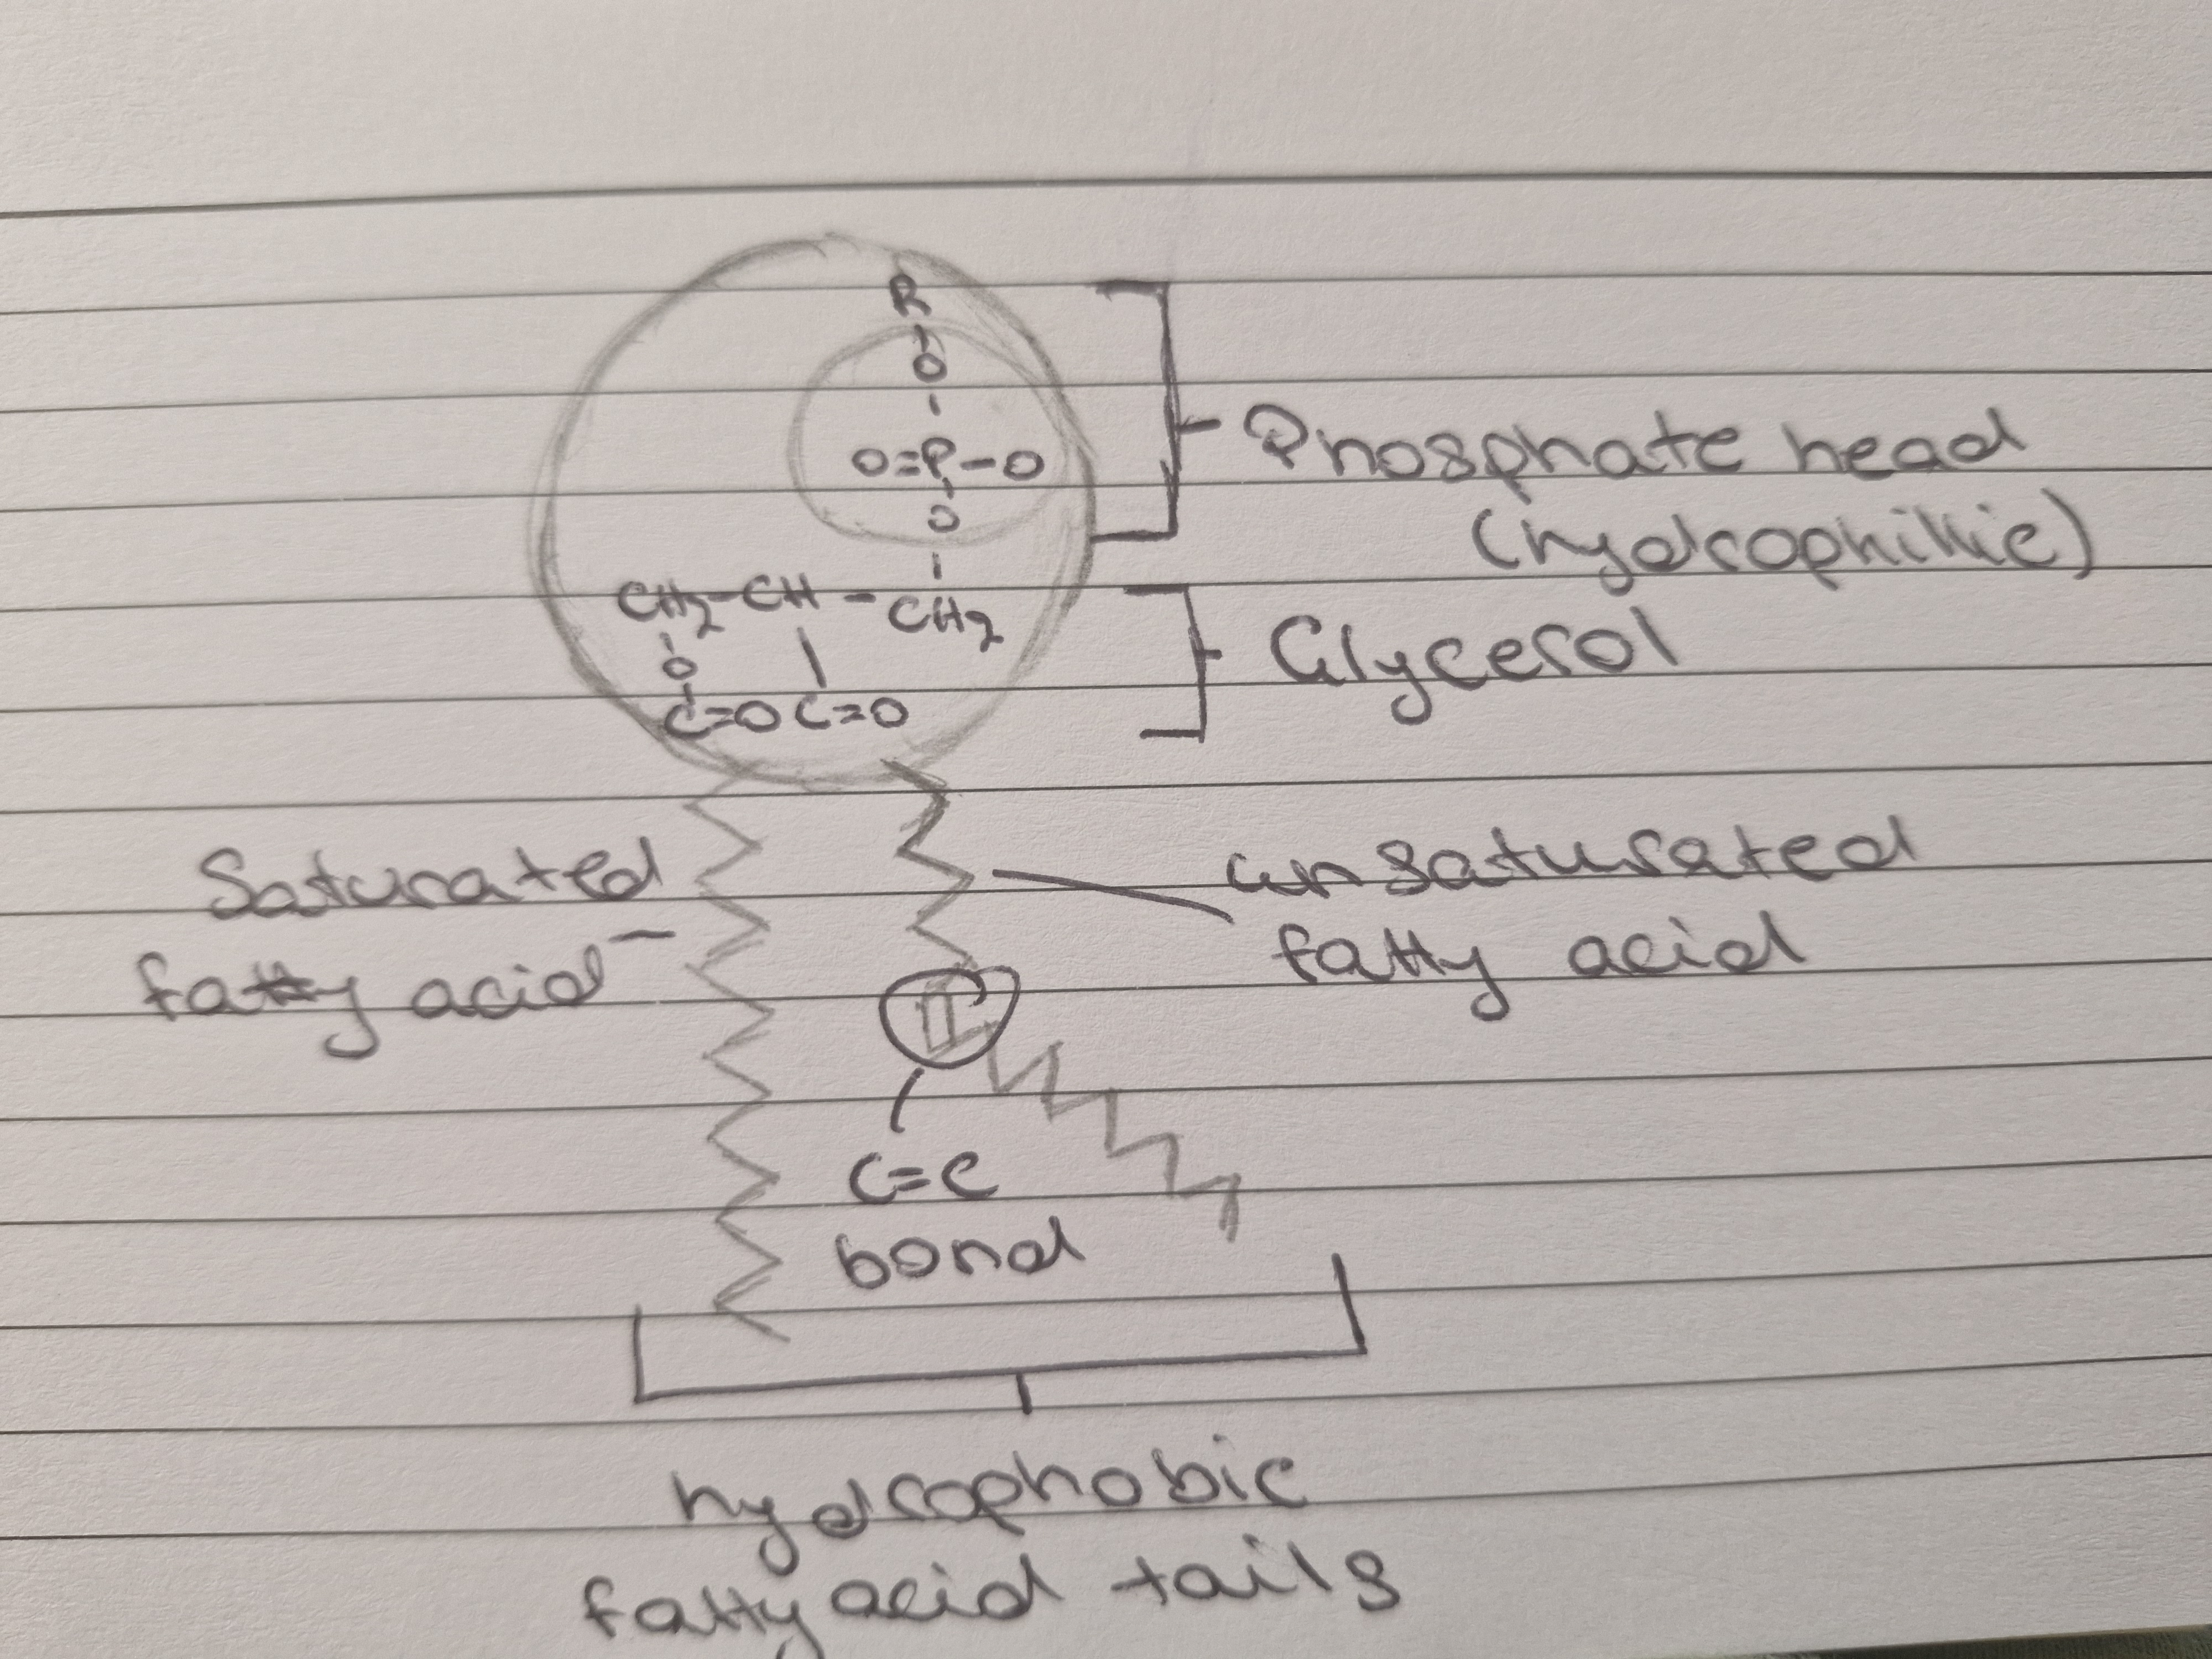 R
O
O=P-O
O
CH2-CH-CH2
O
C=O C=O
Phosphate head
(hydrophillic)
Glycerol
Saturated
fatty acid
unsaturated
fatty acid
C=C
bond
hydrophobic
fatty acid tails